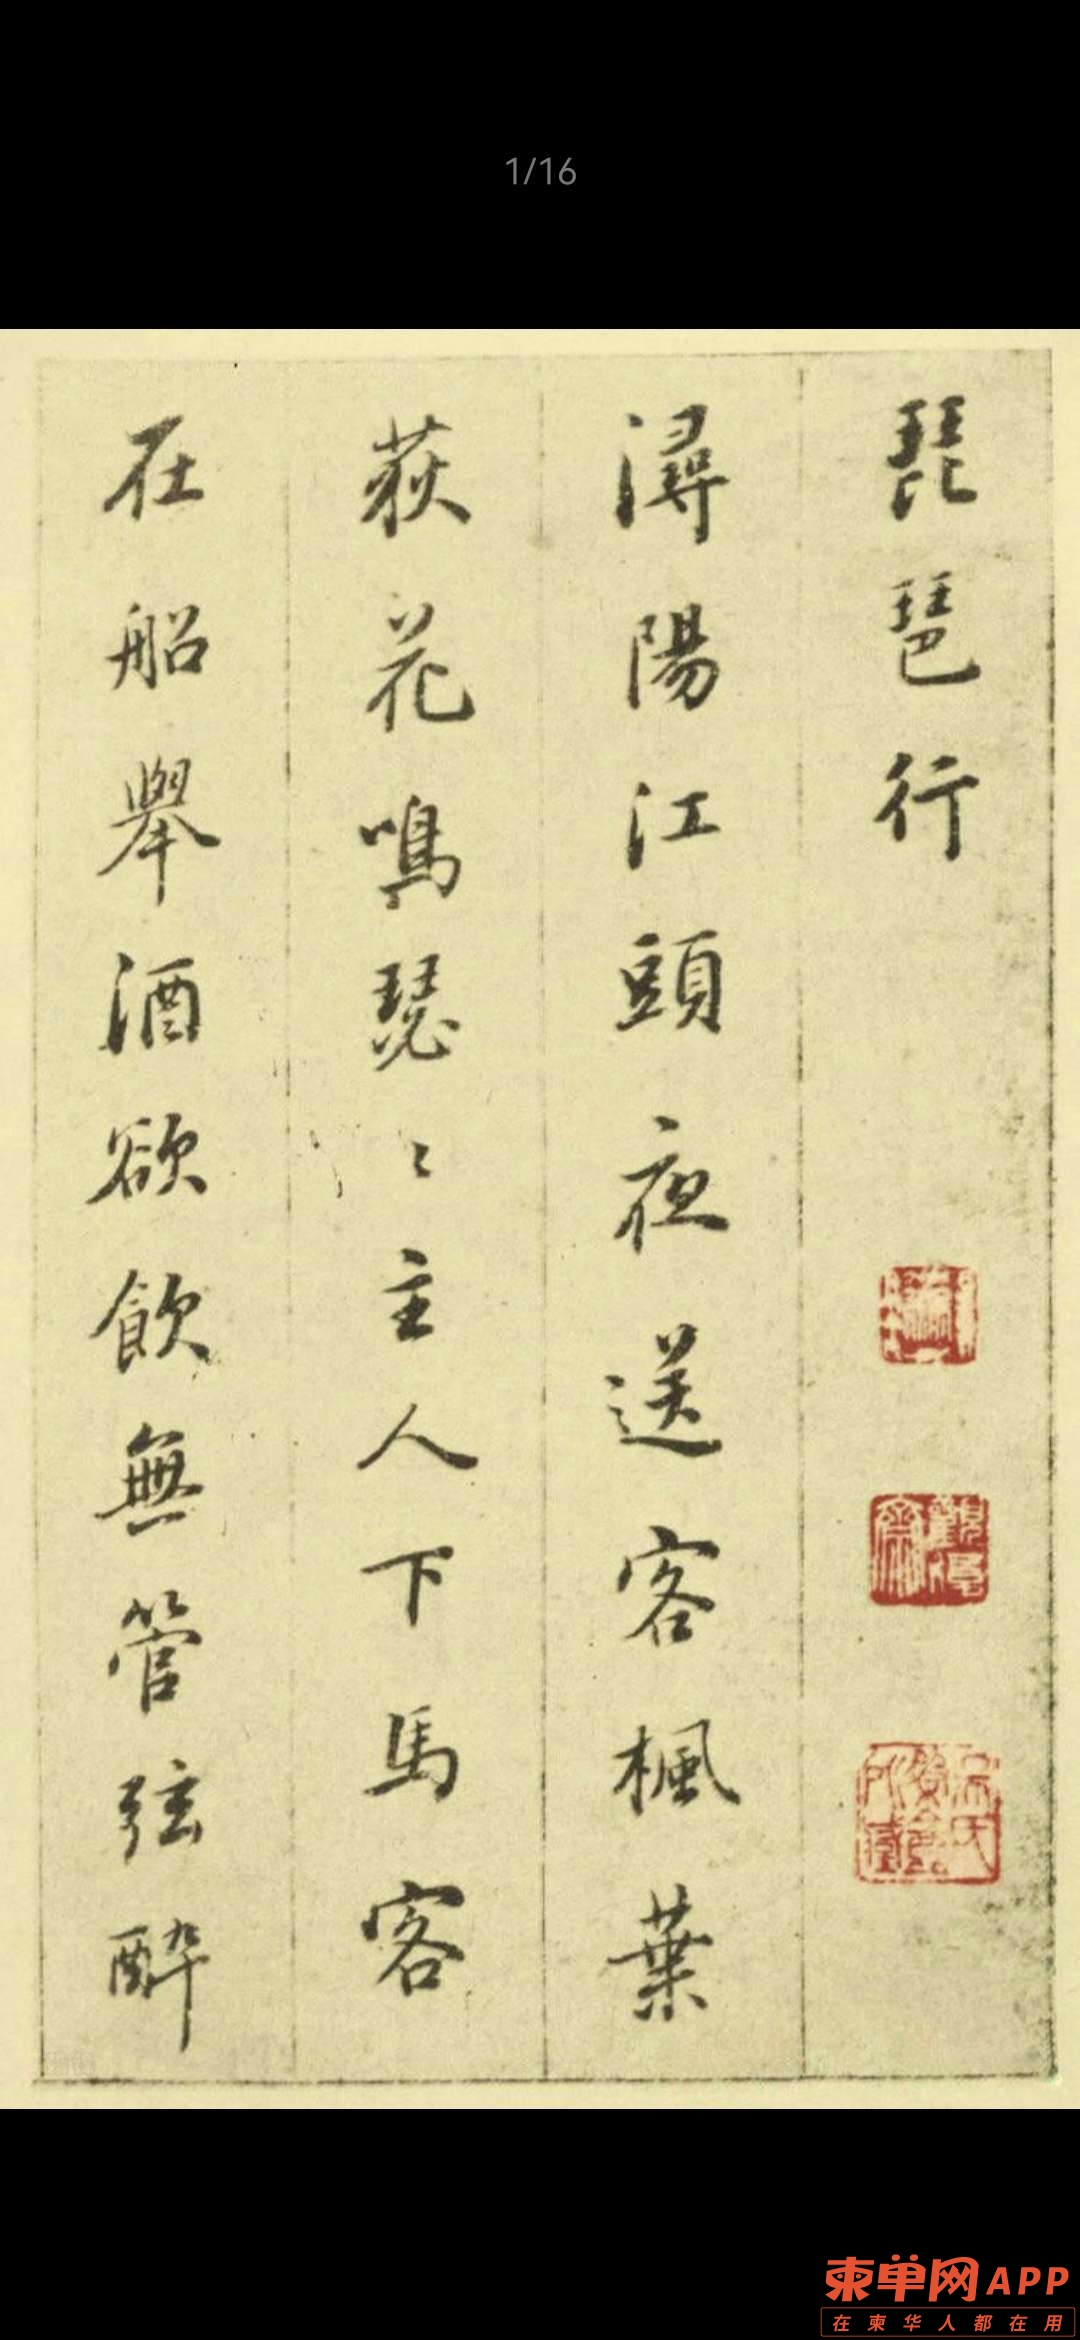 1/16
琵琶行
潯陽江頭夜送客楓葉
荻花鳴瑟〻主人下馬客
在船舉酒欲飲無管弦醉
柬单网APP
在柬华人都在用